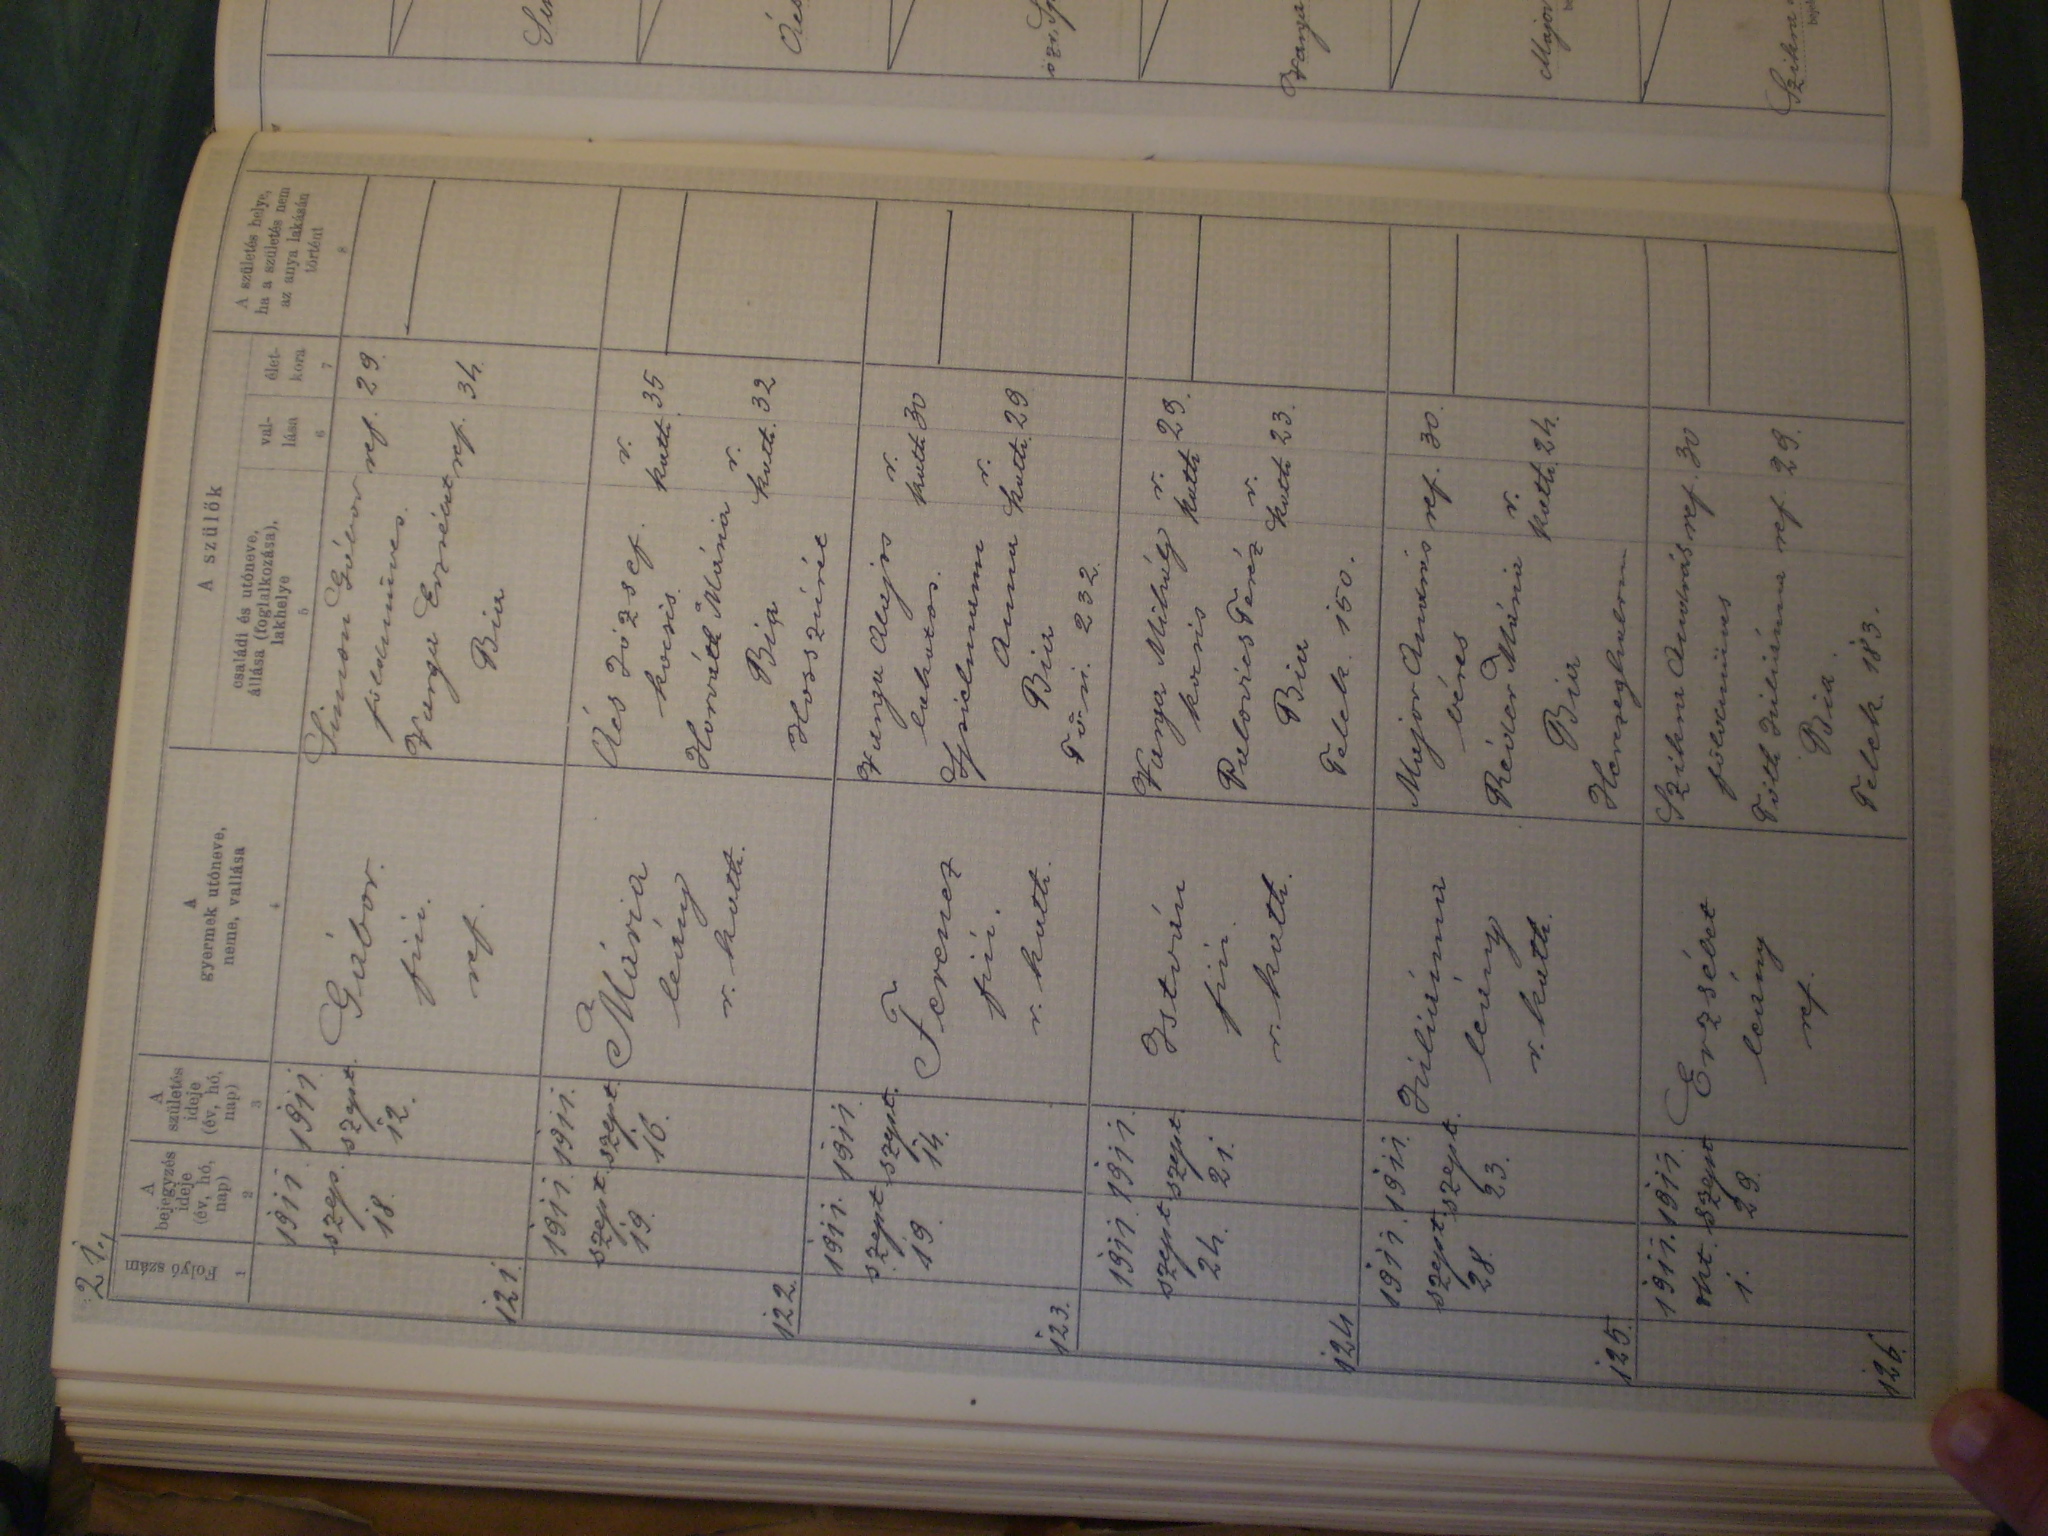 21.
Folyó szám
A
bejegyzés
ideje
(év, hó,
nap)
A
születés
ideje
(év, hó,
nap)
A
gyermek utóneve,
neme, vallása
A szülők
családi és utóneve,
állása (foglalkozása),
lakhelye
val-
lása
élet-
kora
A születés helye,
ha a születés nem
az anya lakásán
történt
1 2 3 4 5 6 7 8
121.
1911
szept.
18.
1911
szept.
12.
Gábor.
fiú.
ref.
Simon Gábor ref. 29.
földmüves.
Varga Erzsébet ref. 34.
Bia
122.
1911.
szept.
19.
1911.
szept.
16.
Mária
leány
r. kath.
Ács József. r. kath. 35
kocsis.
Horváth Mária r. kath. 32
Bia
123.
1911.
szept.
19
1911
szept.
14.
Ferencz
fiú.
r. kath.
Varga Alajos r. kath. 30
lakatos.
Anna r. kath. 29
Bia
232.
124.
1911.
szept.
24.
1911.
szept.
21.
István
fiú.
r. kath.
Varga Mihály r. kath. 29.
kocsis
Palovics Teréz r. kath. 23.
Bia
Telek. 150.
125.
1911.
szept.
28.
1911.
szept.
23.
Juliánna
leány
r. kath.
Major András ref. 30.
béres
Réder Mária r. kath. 24.
Bia
Herczeghalom
126.
1911.
okt.
1.
1911.
szept
29.
Erzsébet
leány
ref.
Szikra András ref. 30
földmüves
Tóth Juliánna ref. 29.
Bia
Telek. 183.